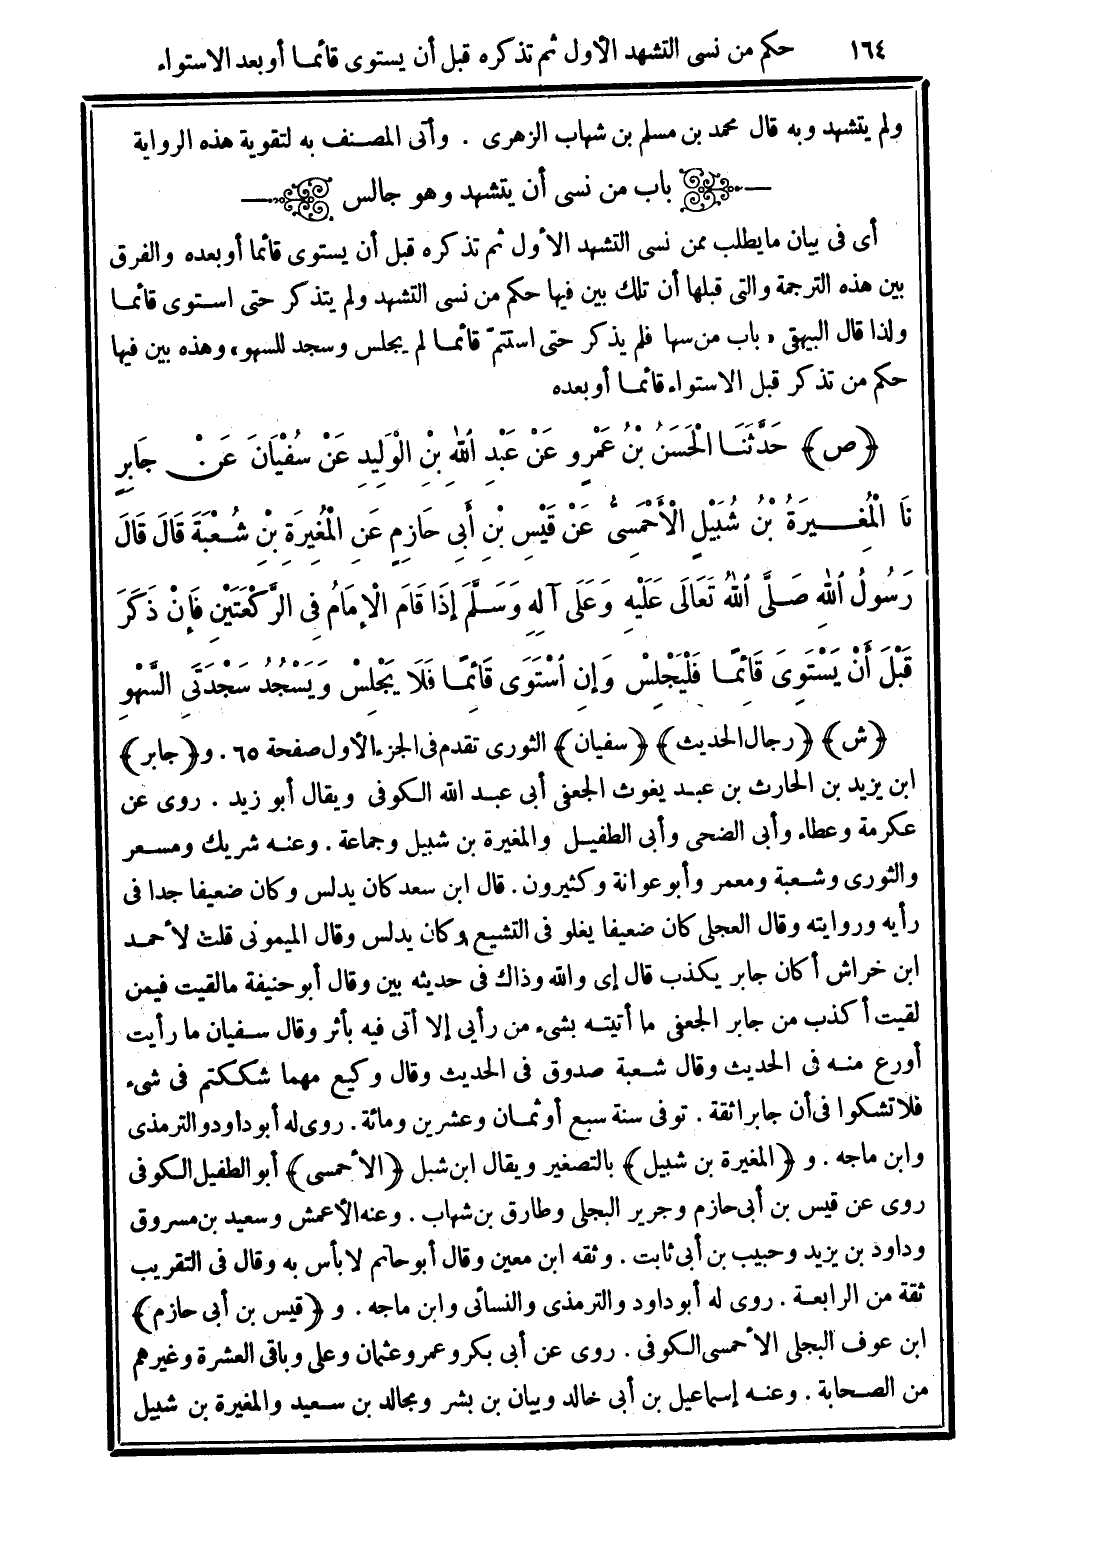 ١٦٤ حكم من نسى التشهد الأول ثم تذكره قبل أن يستوى قائما أو بعد الاستواء
ولم يتشهد وبه قال محمد بن مسلم بن شهاب الزهرى . وأتى المصنف به لتقوية هذه الرواية
باب من نسى أن يتشهد وهو جالس
أى فى بيان ما يطلب ممن نسى التشهد الأول ثم تذكره قبل أن يستوى قائما أو بعده والفرق
بين هذه الترجمة والتى قبلها أن تلك بين فيها حكم من نسى التشهد ولم يتذكر حتى استوى قائما
ولذا قال البيهقى «باب من سها فلم يذكر حتى استتمّ قائما لم يجلس وسجد للسهو» وهذه بين فيها
حكم من تذكر قبل الاستواء قائما أو بعده
﴿ص﴾ حَدَّثَنَا الْحَسَنُ بْنُ عَمْرٍو عَنْ عَبْدِ اللهِ بْنِ الْوَلِيدِ عَنْ سُفْيَانَ عَنْ جَابِرٍ
نَا الْمُغِيرَةُ بْنُ شُبَيْلٍ الْأَحْمَسِىُّ عَنْ قَيْسِ بْنِ أَبِى حَازِمٍ عَنِ الْمُغِيرَةِ بْنِ شُعْبَةَ قَالَ قَالَ
رَسُولُ اللهِ صَلَّى اللهُ تَعَالَى عَلَيْهِ وَعَلَى آلِهِ وَسَلَّمَ إِذَا قَامَ الْإِمَامُ فِى الرَّكْعَتَيْنِ فَإِنْ ذَكَرَ
قَبْلَ أَنْ يَسْتَوِىَ قَائِمًا فَلْيَجْلِسْ وَإِنِ اسْتَوَى قَائِمًا فَلَا يَجْلِسْ وَيَسْجُدُ سَجْدَتَىِ السَّهْوِ
﴿ش﴾ ﴿رجال الحديث﴾ ﴿سفيان﴾ الثورى تقدم فى الجزء الأول صفحة ٦٥ . و﴿جابر﴾
ابن يزيد بن الحارث بن عبد يغوث الجعفى أبى عبد الله الكوفى ويقال أبو زيد . روى عن
عكرمة وعطاء وأبى الضحى وأبى الطفيل والمغيرة بن شبيل وجماعة . وعنه شريك ومسعر
والثورى وشعبة ومعمر وأبو عوانة وكثيرون . قال ابن سعد كان يدلس وكان ضعيفا جدا فى
رأيه وروايته وقال العجلى كان ضعيفا يغلو فى التشيع وكان يدلس وقال الميمونى قلت لأحمد
ابن خراش أكان جابر يكذب قال إى والله وذاك فى حديثه بين وقال أبو حنيفة مالقيت فيمن
لقيت أكذب من جابر الجعفى ما أتيته بشىء من رأيى إلا أتى فيه بأثر وقال سفيان ما رأيت
أورع منه فى الحديث وقال شعبة صدوق فى الحديث وقال وكيع مهما شككتم فى شىء
فلا تشكوا فى أن جابرا ثقة . توفى سنة سبع أو ثمان وعشرين ومائة . روى له أبو داود والترمذى
وابن ماجه . و ﴿المغيرة بن شبيل﴾ بالتصغير ويقال ابن شبل ﴿الأحمسى﴾ أبو الطفيل الكوفى
روى عن قيس بن أبى حازم وجرير البجلى وطارق بن شهاب . وعنه الأعمش وسعيد بن مسروق
وداود بن يزيد وحبيب بن أبى ثابت . وثقه ابن معين وقال أبو حاتم لا بأس به وقال فى التقريب
ثقة من الرابعة . روى له أبو داود والترمذى والنسائى وابن ماجه . و ﴿قيس بن أبى حازم﴾
ابن عوف البجلى الأحمسى الكوفى . روى عن أبى بكر وعمر وعثمان وعلى وباقى العشرة وغيرهم
من الصحابة . وعنه إسماعيل بن أبى خالد وبيان بن بشر ومجالد بن سعيد والمغيرة بن شبيل